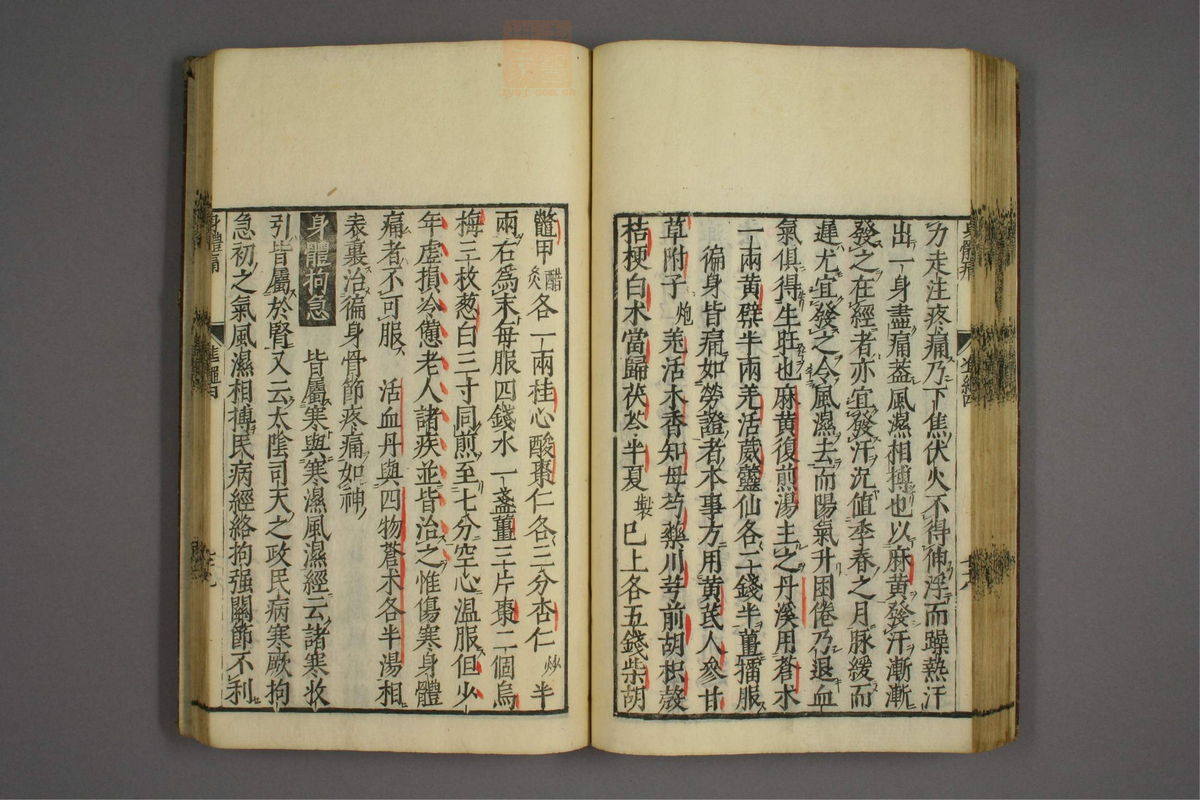 力走注疼痛乃下焦伏火不得伸浮而躁熱汗
出一身盡痛蓋風濕相搏也以麻黄發汗漸漸
發之在經者亦宜發汗况値季春之月脉緩而
遲尤宜發之令風濕去而陽氣升困倦乃退血
氣俱得生旺也麻黄復煎湯主之丹溪用蒼术
一兩黄蘗半兩羌活葳靈仙各二錢半薑擂服
徧身皆痛如勞證者本事方用黄芪人參甘
草附子炮羌活木香知母芍藥川芎前胡枳殼
桔梗白术當歸茯苓半夏製已上各五錢柴胡
鼈甲醋炙各一兩桂心酸棗仁各三分杏仁炒半
兩右爲末每服四錢水一盞薑三片棗二個烏
梅三枚葱白三寸同煎至七分空心温服但少
年虚損冷憊老人諸疾並皆治之惟傷寒身體
痛者不可服　活血丹與四物蒼术各半湯相
表裏治徧身骨節疼痛如神
身體拘急　皆屬寒與寒濕風濕經云諸寒收
引皆屬於腎又云太陰司天之政民病寒厥拘
急初之氣風濕相搏民病經絡拘强關節不利
身體痛